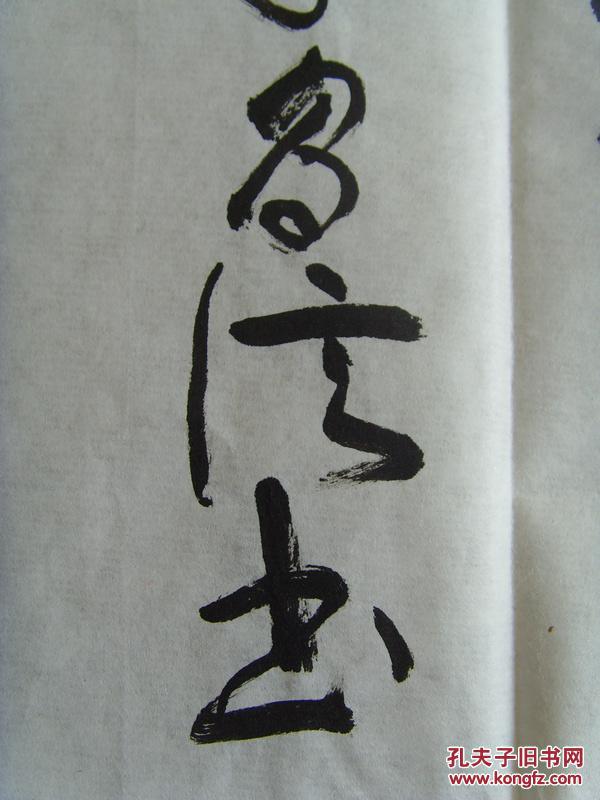 昌信书
孔夫子旧书网
www.kongfz.com